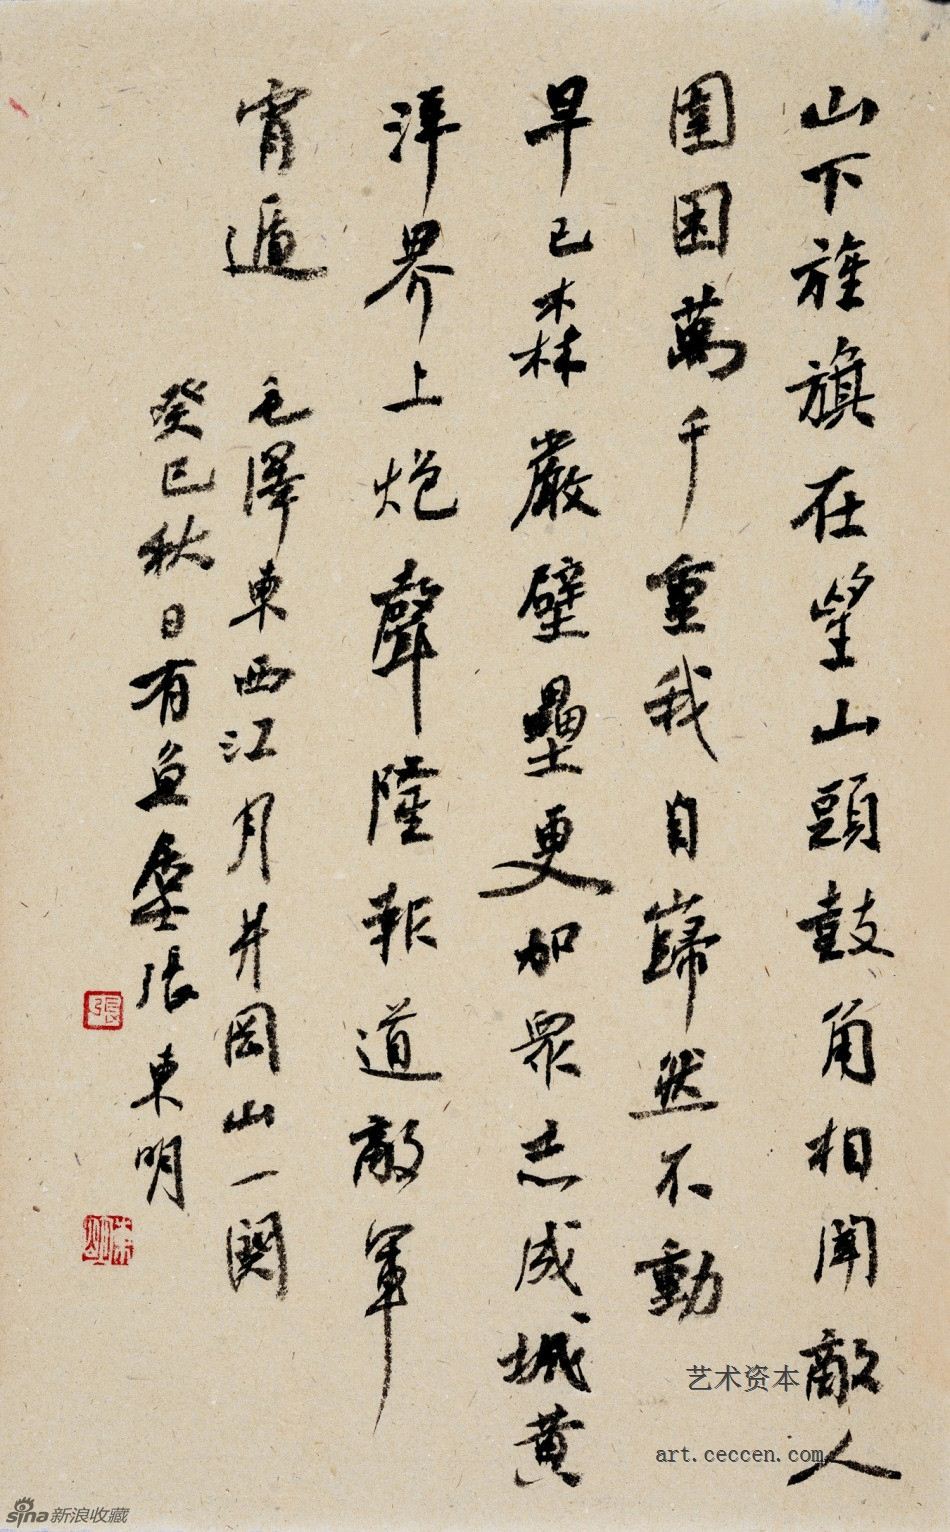 山下旌旗在望山頭鼓角相聞敵人
圍困萬千重我自巋然不動
早已森嚴壁壘更加眾志成城黃
洋界上炮聲隆報道敵軍
宵遁
毛澤東西江月井岡山一闋
癸巳秋日有魚張東明
張
艺术资本
art.ceccen.com
sina新浪收藏